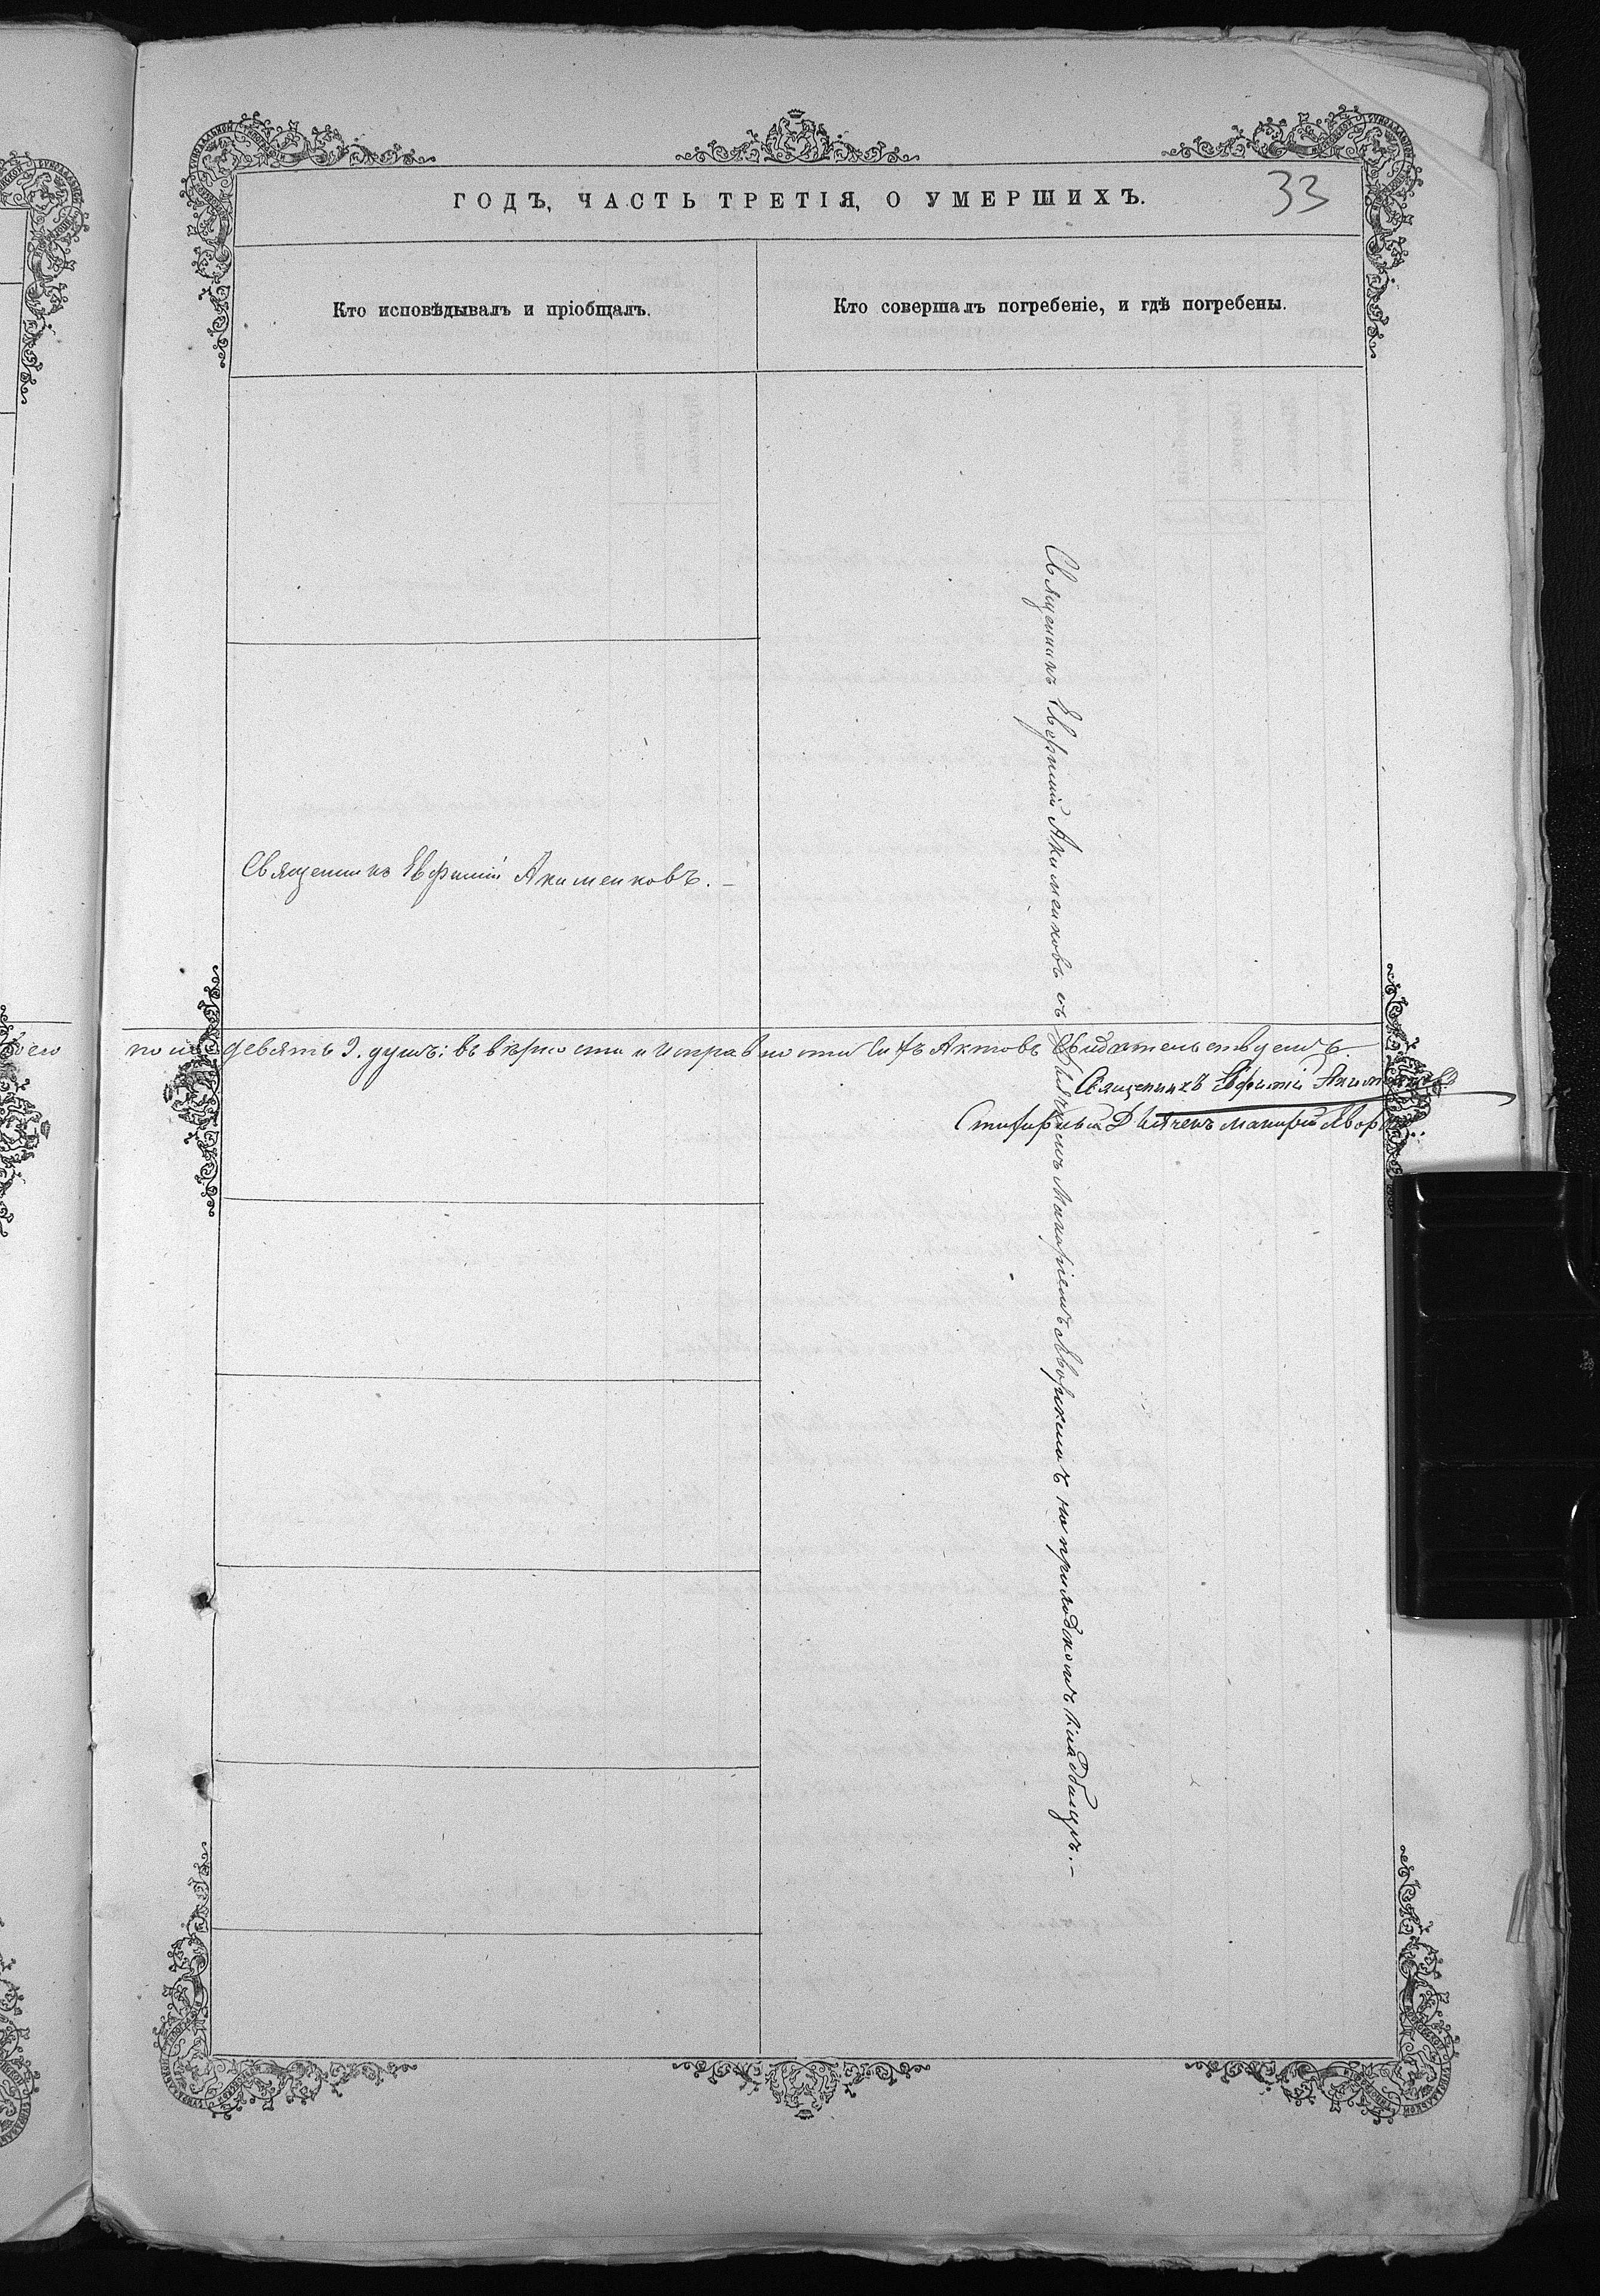 ГОДЪ, ЧАСТЬ ТРЕТІЯ, О УМЕРШИХЪ.
33
Кто исповѣдывалъ и пріобщалъ.
Кто совершалъ погребеніе, и гдѣ погребены.
Священникъ Евфимій Акименковъ.
Священникъ Евфимій Акименковъ съ Дьячкомъ Макаріемъ Яворскимъ на приходскомъ кладбищѣ.
девять 9. душъ: въ вѣрности и исправности сихъ Актовъ свидѣтельствуемъ.
Священникъ Евфимій Акименковъ
Дьячекъ Макарій Яворскій